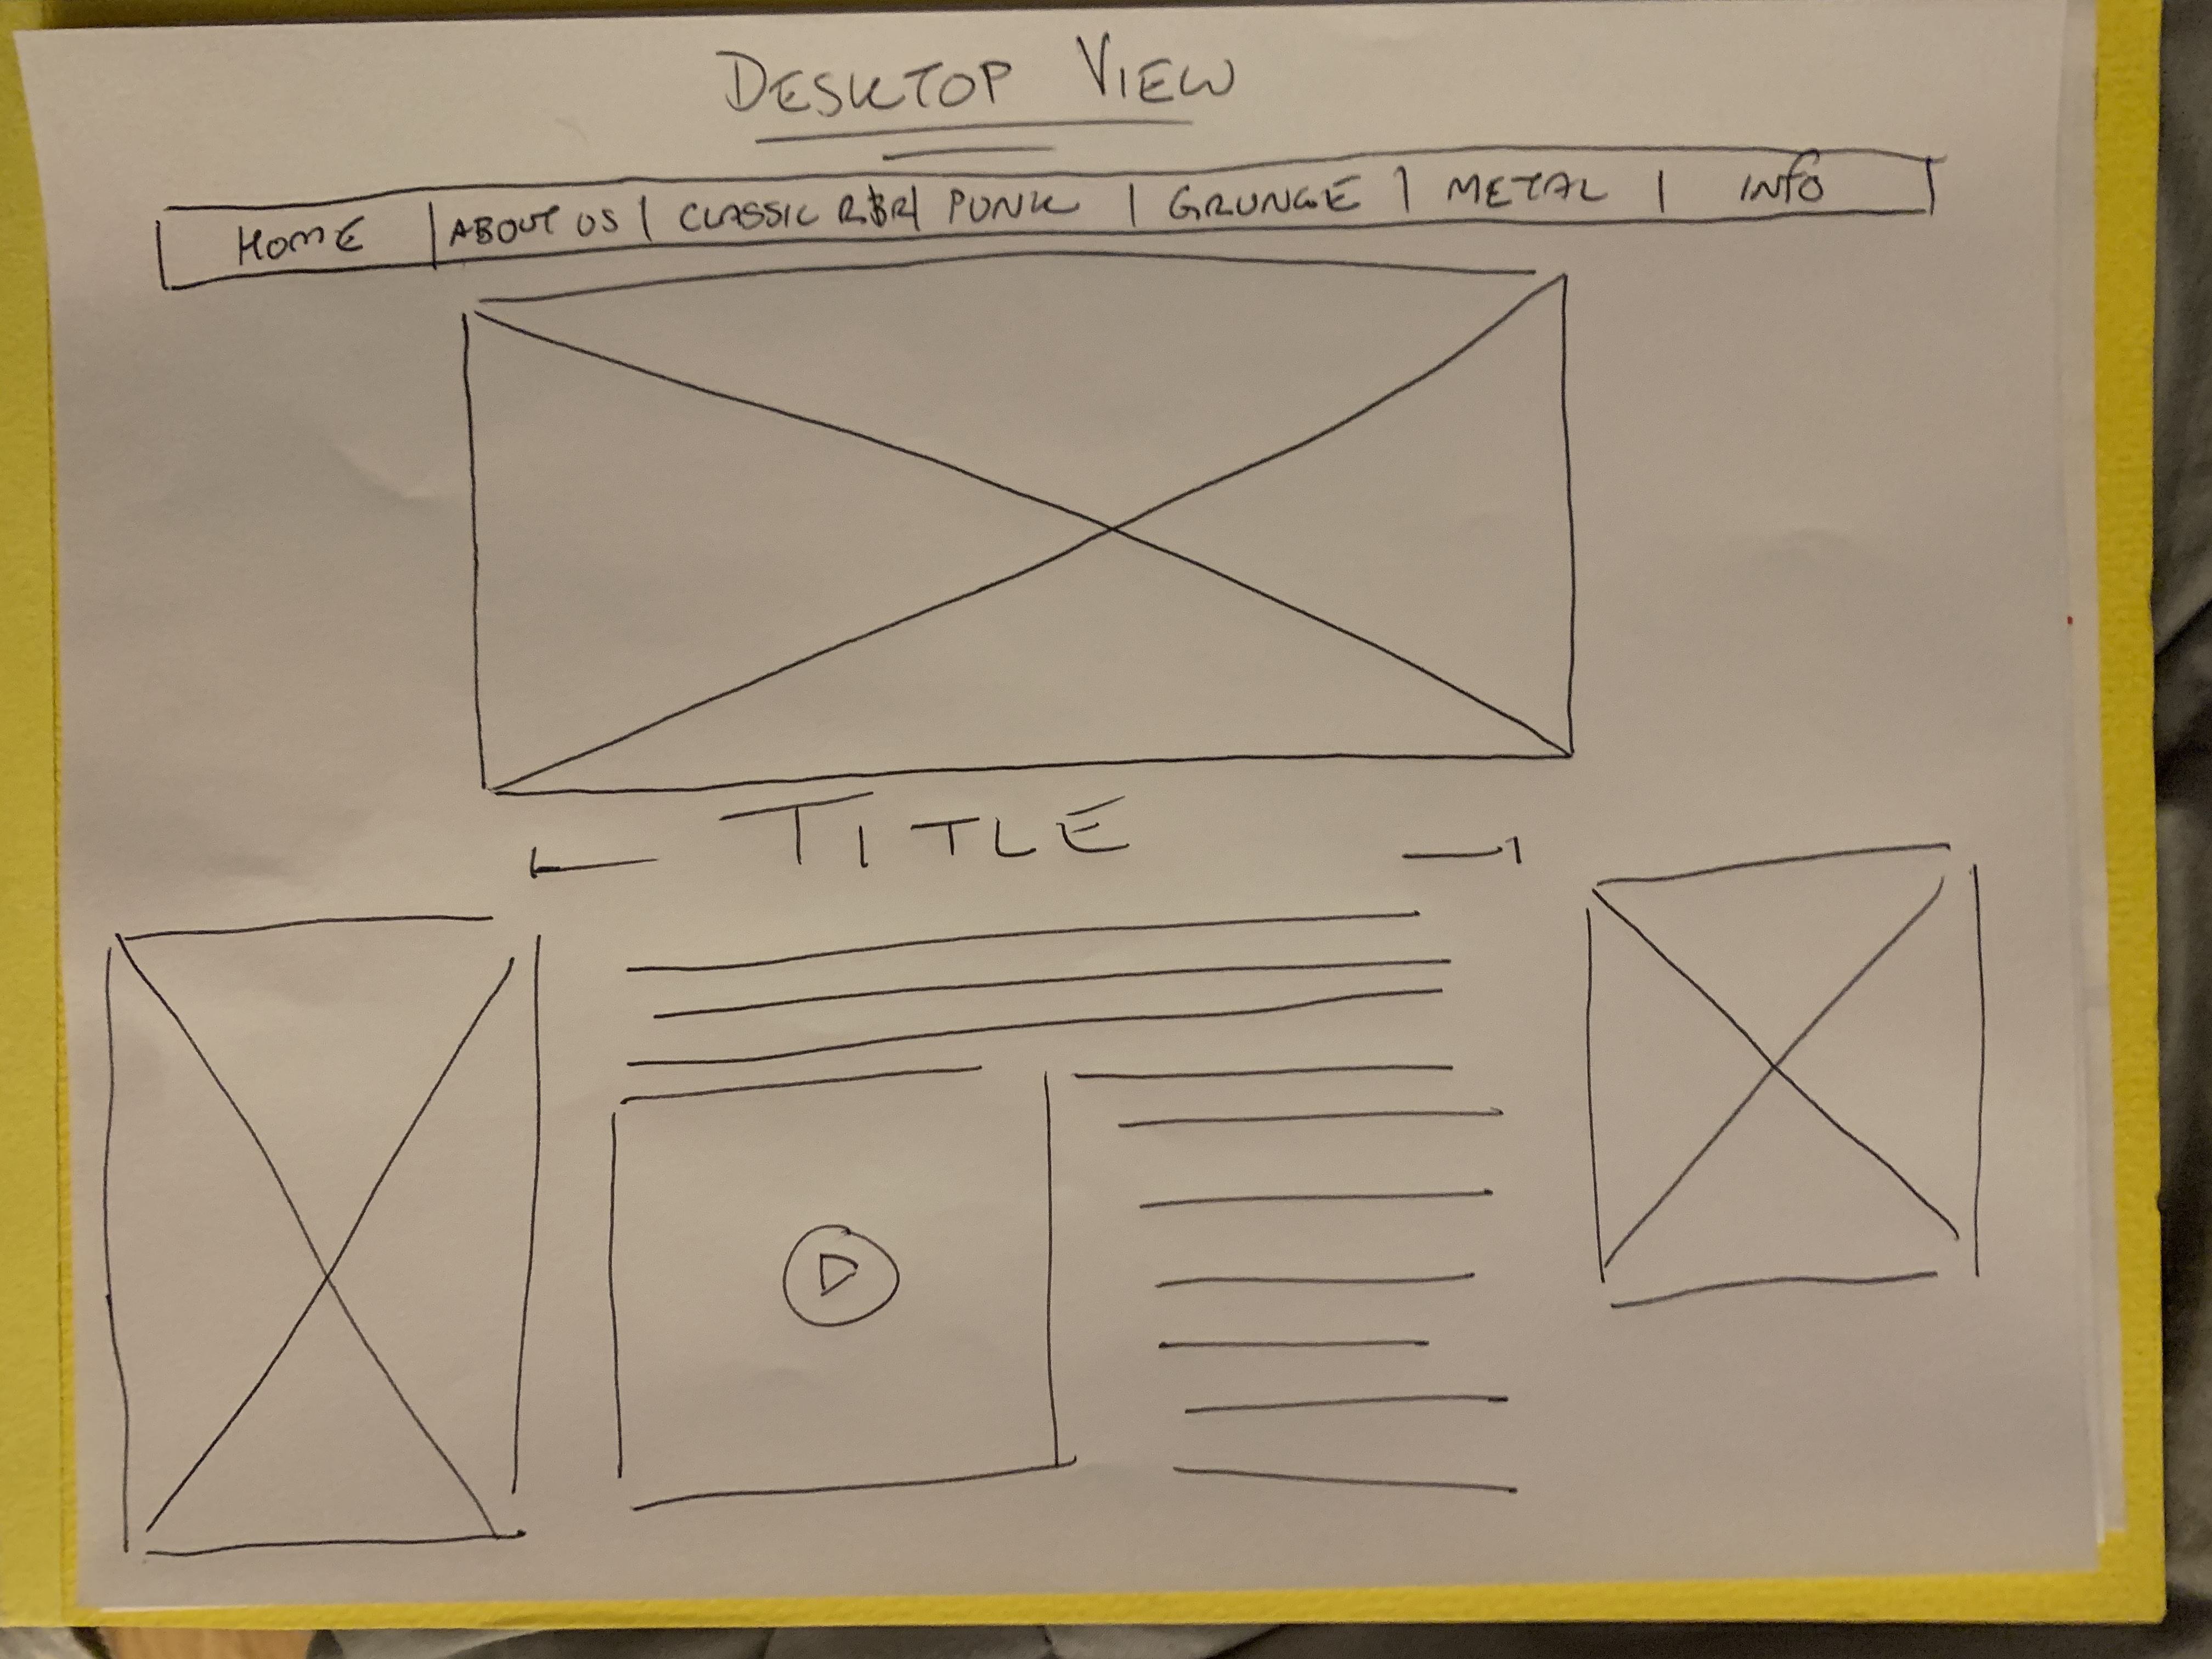 DESKTOP VIEW
HOME | ABOUT US | CLASSIC R&R | PUNK | GRUNGE | METAL | INFO
TITLE